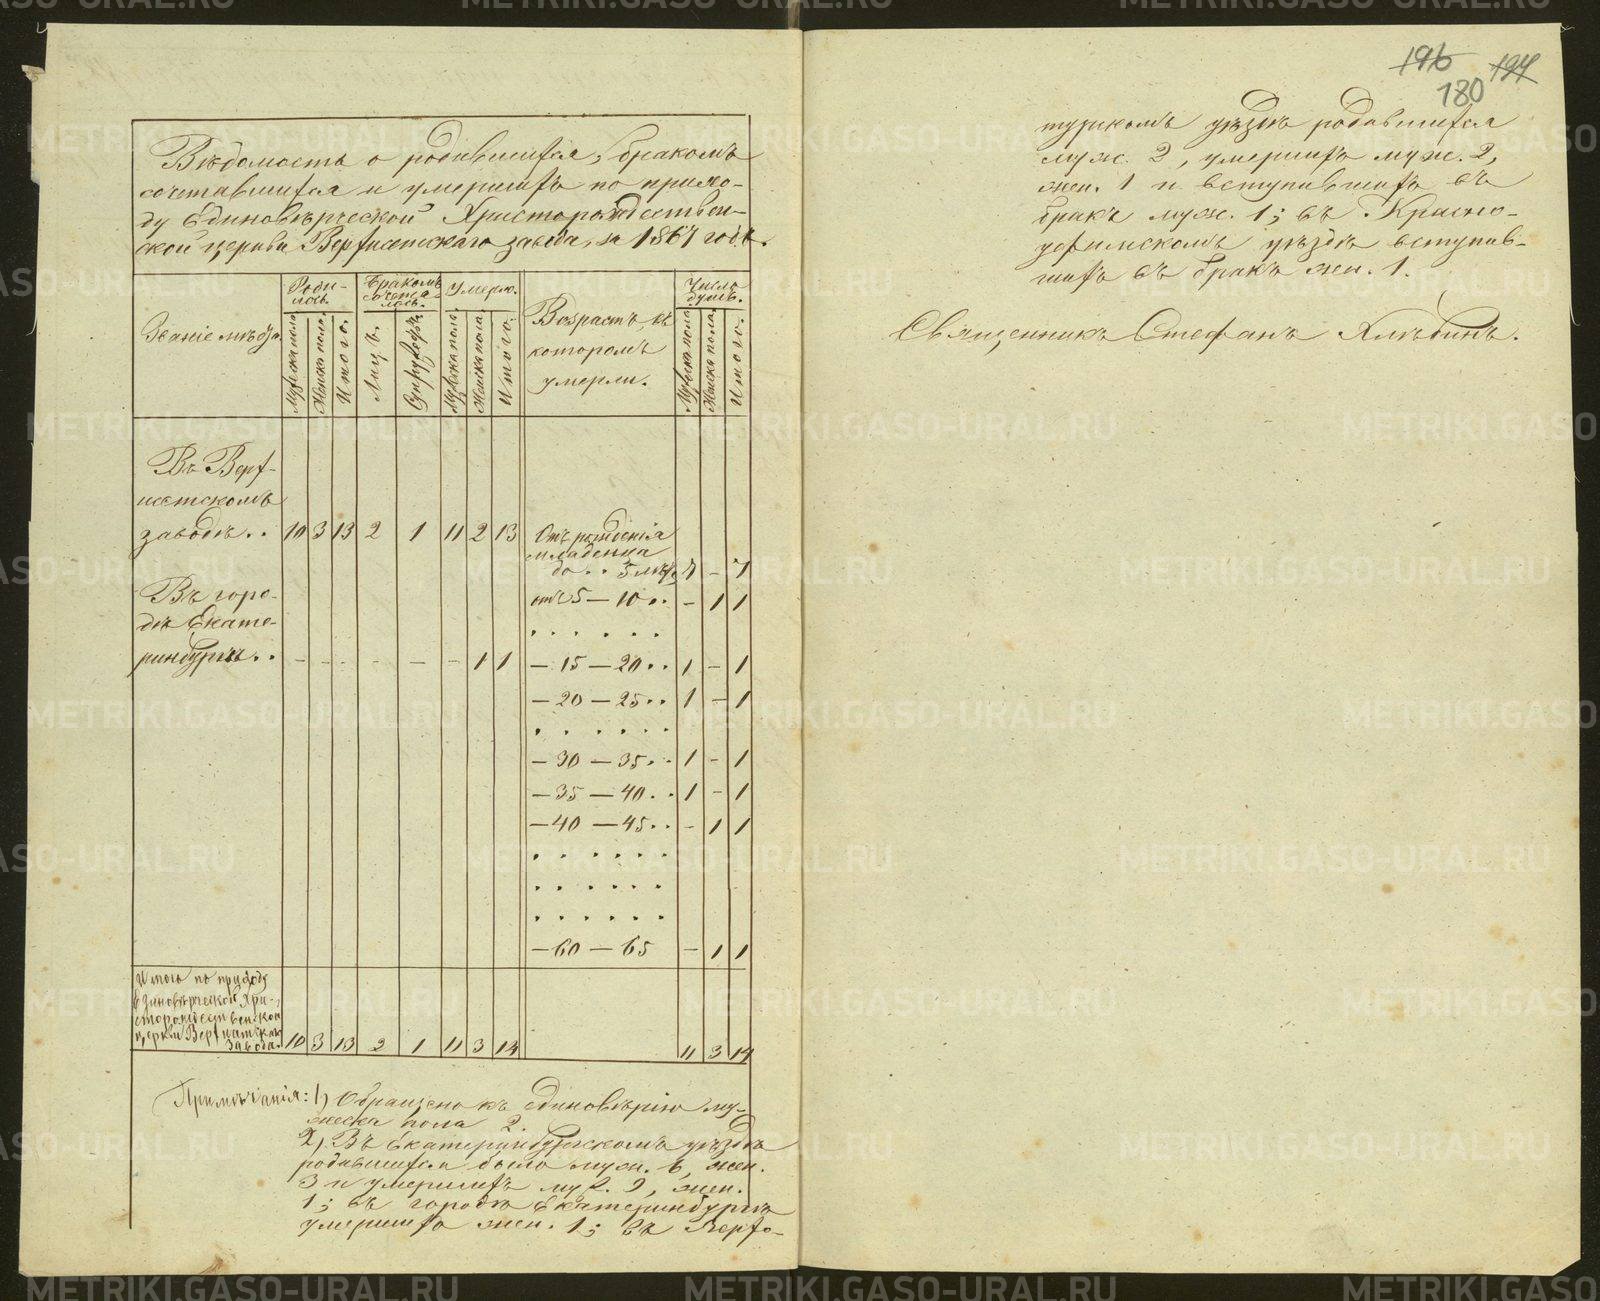 Вѣдомость о родившихся, бракомъ
сочетавшихся и умершихъ по прихо-
ду Единовѣрческой Христорождествен-
ской церкви Верхисетскаго завода, за 1867 годъ.
Званіе мѣста.
Роди-
лось.
Бракомъ
сочета-
лось.
Умерло.
Возрастъ, въ
которомъ
умерли.
Число
душъ.
Мужеска пола.
Женска пола.
Итого.
Лицъ.
Супружествъ.
Мужеска пола.
Женска пола.
Итого.
Мужеска пола.
Женска пола.
Итого.
Въ Верх-
исетскомъ
заводѣ.. 10 3 13 2 1 11 2 13
Отъ рожденія
младенца
до .. 5 лѣтъ 7 - 7
Въ горо-
дѣ Екате-
ринбургѣ.. - - - - - - 1 1
отъ 5 — 10.. - 1 1
. . . . . .
— 15 — 20.. 1 - 1
— 20 — 25.. 1 - 1
. . . . . .
— 30 — 35.. 1 - 1
— 35 — 40.. 1 - 1
— 40 — 45.. - 1 1
. . . . . .
. . . . . .
. . . . . .
— 60 — 65 - 1 1
Итого по приходу
Единовѣрческой Хри-
сторождественской
церкви Верхисетскаго
завода. 10 3 13 2 1 11 3 14 11 3 14
Примѣчанія: 1) Обращено къ единовѣрію му-
жеска пола 2.
2) Въ Екатеринбургскомъ уѣздѣ
родившихся было муж. 6, жен.
3 и умершихъ муж. 9, жен.
1; въ городѣ Екатеринбургѣ
умершихъ жен. 1; въ Верхо-
196 194
180
турскомъ уѣздѣ родившихся
муж. 2, умершихъ муж. 2,
жен. 1 и вступившихъ въ
бракъ муж. 1; въ Красно-
уфимскомъ уѣздѣ вступив-
шихъ въ бракъ жен. 1.
Священникъ Стефанъ Хлѣбинъ.
METRIKI.GASO-URAL.RU